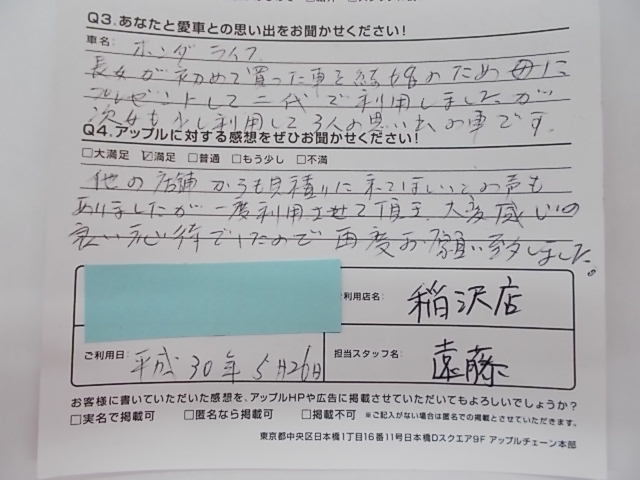 Q3.あなたと愛車との思い出をお聞かせください!
車名: ホンダライフ
長女が初めて買った車を結婚のため母に
プレゼントして二代で利用しましたが
次女も少し利用して3人の思い出の車です。
Q4.アップルに対する感想をぜひお聞かせください!
□大満足 ☑満足 □普通 □もう少し □不満
他の店舗からも見積りに来てほしいとの声も
ありましたが一度利用させて頂き、大変感じの
良い応待でしたので再度お願い致しました。
ご利用店名: 稲沢店
ご利用日: 平成30年5月26日
担当スタッフ名: 遠藤
お客様に書いていただいた感想を、アップルHPや広告に掲載させていただいてもよろしいでしょうか?
□実名で掲載可 □匿名なら掲載可 □掲載不可 ※ご記入がない場合は匿名での掲載とさせていただきます。
東京都中央区日本橋1丁目16番11号日本橋Dスクエア9F アップルチェーン本部